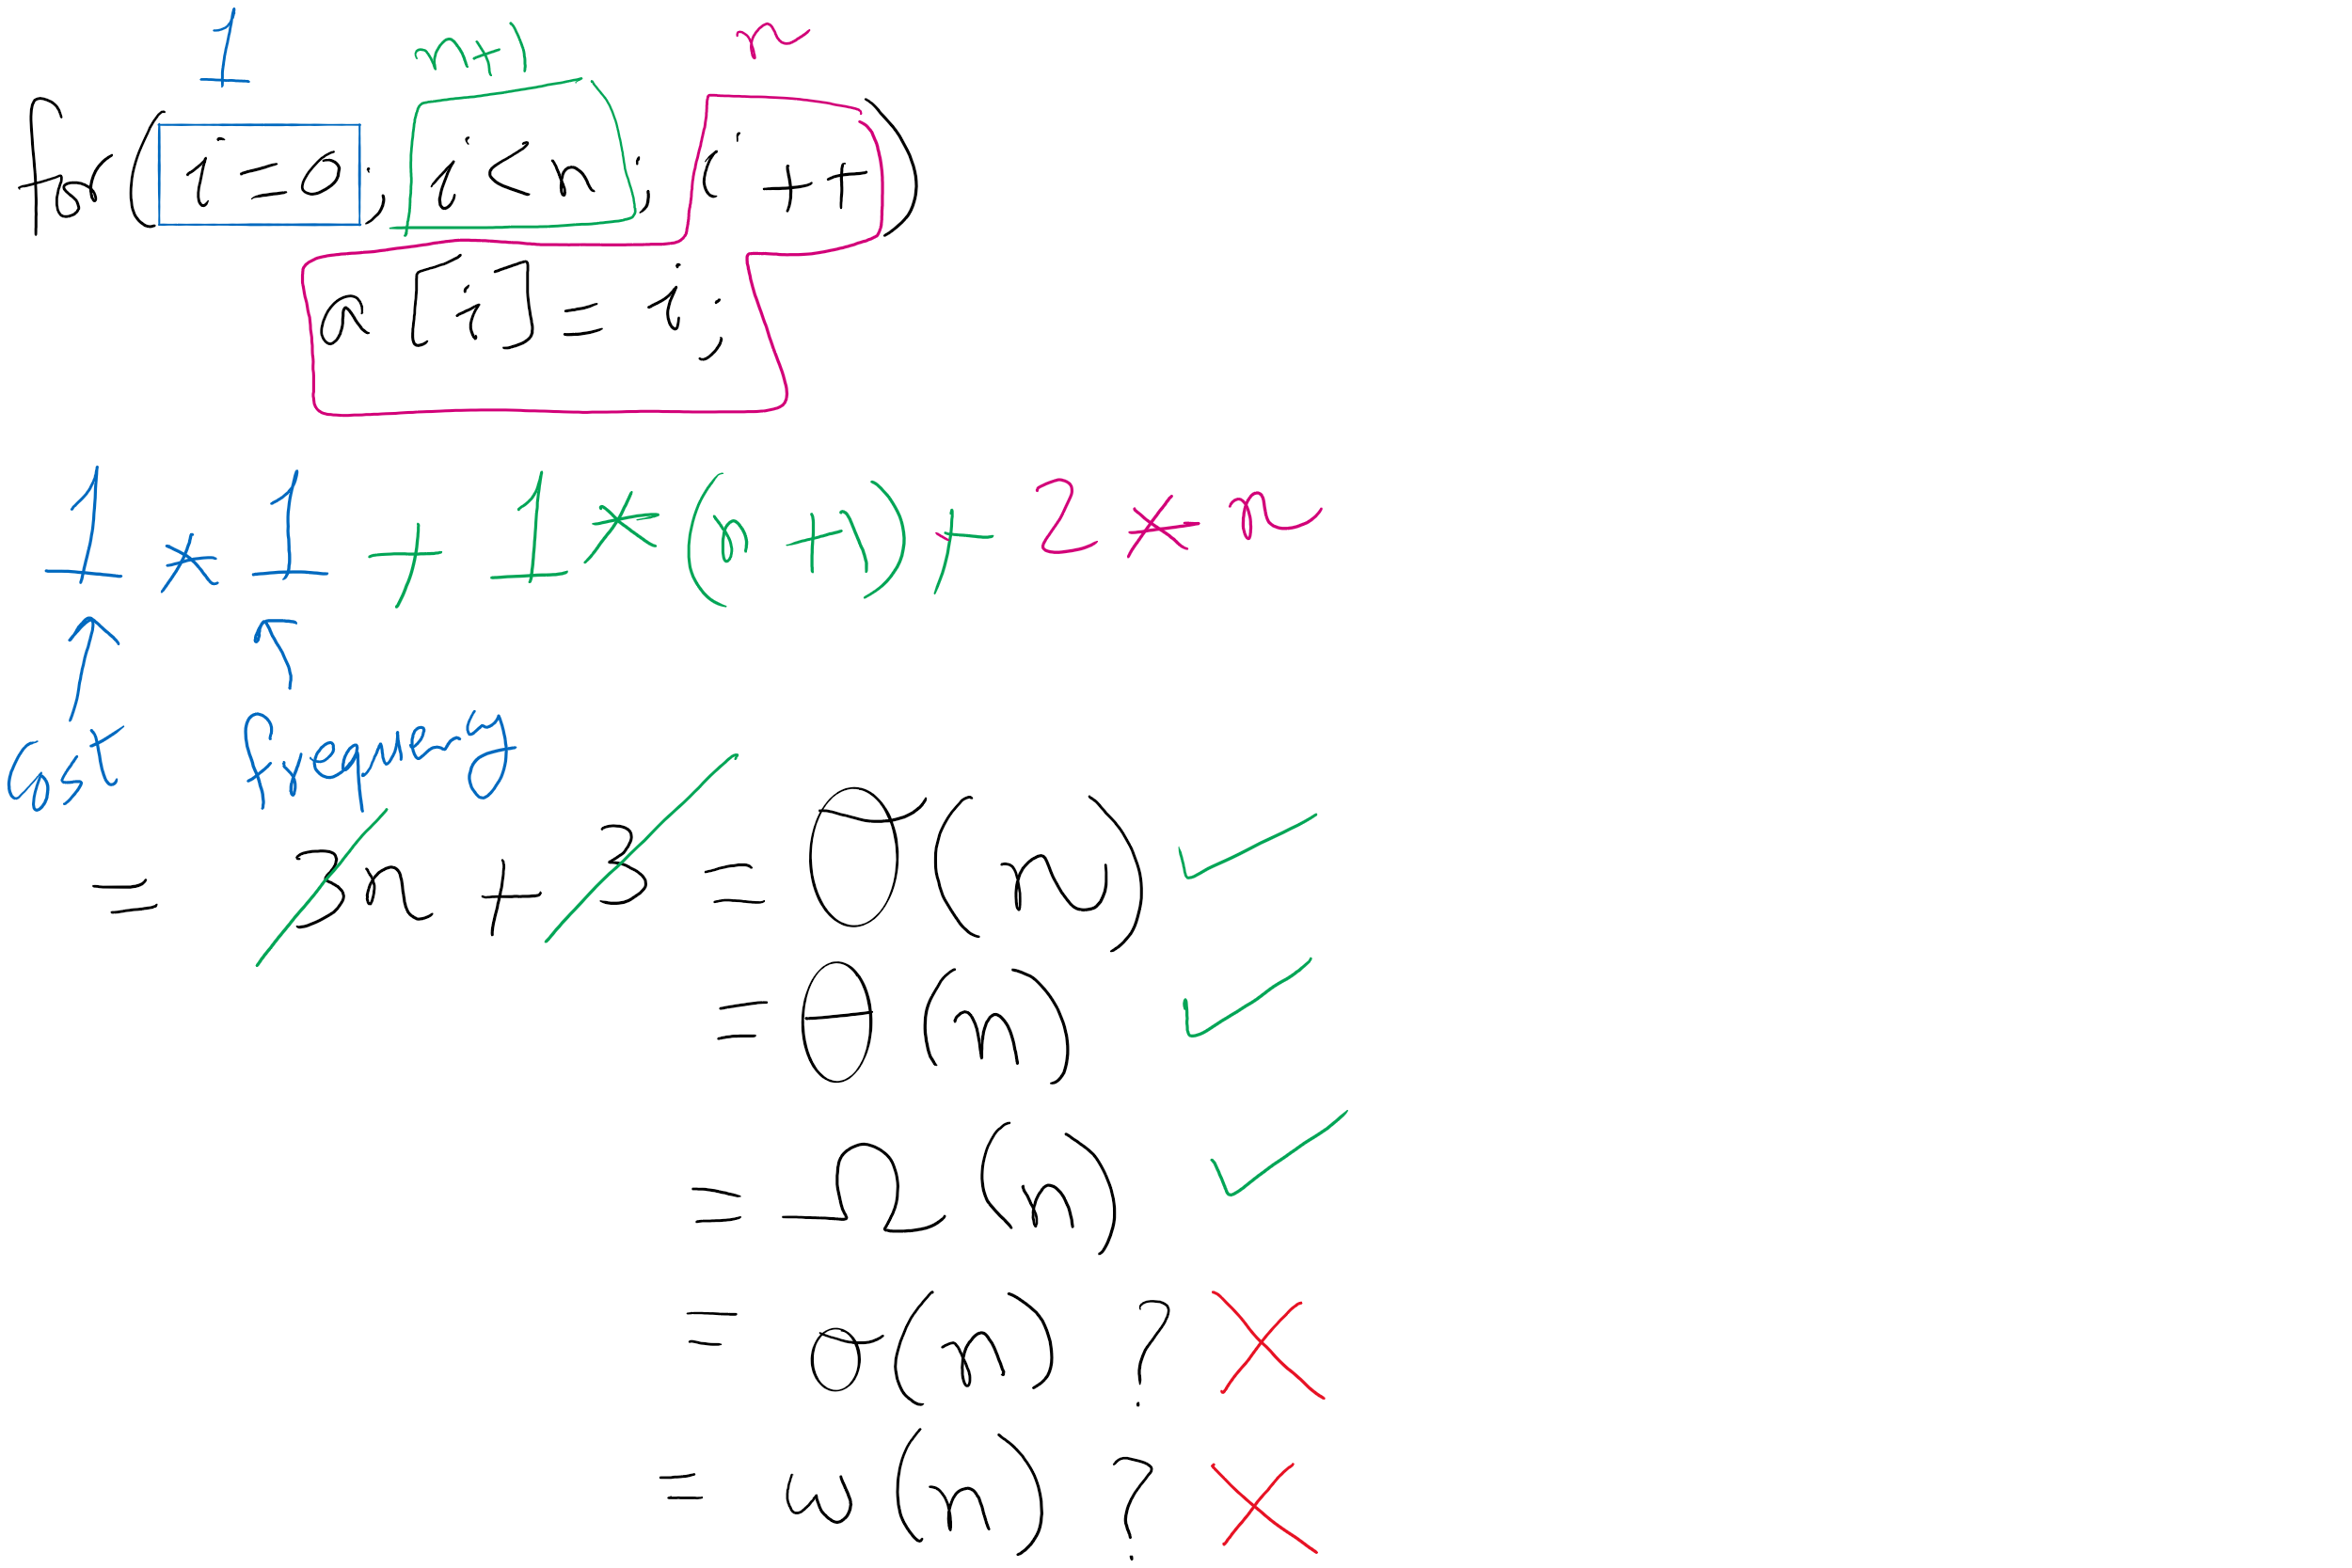 1 n+1 n
for(i=0; i<n; i++)
a[i]=i;
1 * 1 + 1*(n+1) + 2*n
Cost frequency
= 3n + 3 = O(n)
= θ(n)
= Ω(n)
= o(n) ?
= ω(n) ?